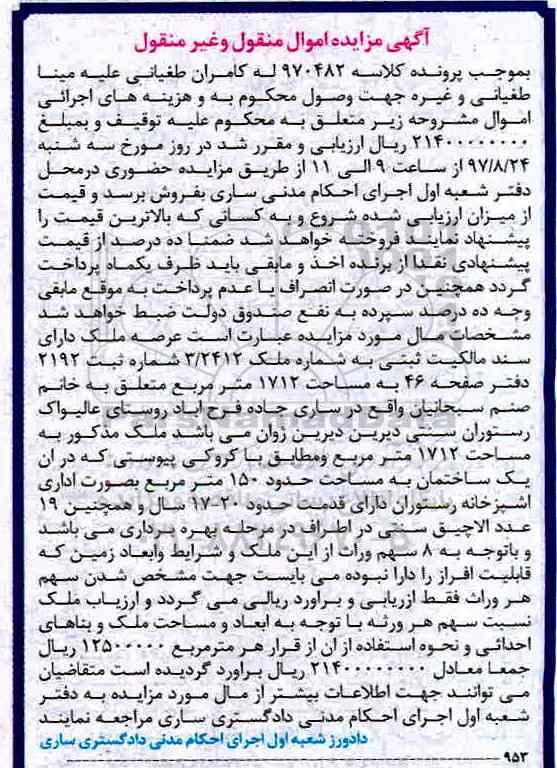 آگهی مزایده اموال منقول وغیر منقول
بموجب پرونده کلاسه ۹۷۰۴۸۲ له کامران طغیانی علیه مینا
طغیانی و غیره جهت وصول محکوم به و هزینه های اجرائی
اموال مشروحه زیر متعلق به محکوم علیه توقیف و بمبلغ
۲۱۴۰۰۰۰۰۰۰۰ ریال ارزیابی و مقرر شد در روز مورخ سه شنبه
۹۷/۸/۲۴ از ساعت ۹ الی ۱۱ از طریق مزایده حضوری درمحل
دفتر شعبه اول اجرای احکام مدنی ساری بفروش برسد و قیمت
از میزان ارزیابی شده شروع و به کسانی که بالاترین قیمت را
پیشنهاد نمایند فروخته خواهد شد ضمنا ده درصد از قیمت
پیشنهادی نقدا از برنده اخذ و مابقی باید ظرف یکماه پرداخت
گردد همچنین در صورت انصراف یا عدم پرداخت به موقع مابقی
وجه ده درصد سپرده به نفع صندوق دولت ضبط خواهد شد
مشخصات مال مورد مزایده عبارت است عرصه ملک دارای
سند مالکیت ثبتی به شماره ملک ۳/۲۴۱۲ شماره ثبت ۲۱۹۲
دفتر صفحه ۴۶ به مساحت ۱۷۱۲ متر مربع متعلق به خانم
صنم سبحانیان واقع در ساری جاده فرح اباد روستای عالیواک
رستوران سنتی دیرین دیرین زوان می باشد ملک مذکور به
مساحت ۱۷۱۲ متر مربع ومطابق با کروکی پیوستی که در ان
یک ساختمان به مساحت حدود ۱۵۰ متر مربع بصورت اداری
اشپزخانه رستوران دارای قدمت حدود ۲۰-۱۷ سال و همچنین ۱۹
عدد الاچیق سنتی در اطراف در مرحله بهره برداری می باشد
و باتوجه به ۸ سهم وراث از این ملک و شرایط وابعاد زمین که
قابلیت افراز را دارا نبوده می بایست جهت مشخص شدن سهم
هر وراث فقط ازریابی و براورد ریالی می گردد و ارزیاب ملک
نسبت سهم هر ورثه با توجه به ابعاد و مساحت ملک و بناهای
احداثی و نحوه استفاده از ان از قرار هر مترمربع ۱۲۵۰۰۰۰۰ ریال
جمعا معادل ۲۱۴۰۰۰۰۰۰۰۰ ریال براورد گردیده است متقاضیان
می توانند جهت اطلاعات بیشتر از مال مورد مزایده به دفتر
شعبه اول اجرای احکام مدنی دادگستری ساری مراجعه نمایند
دادورز شعبه اول اجرای احکام مدنی دادگستری ساری
۹۵۳